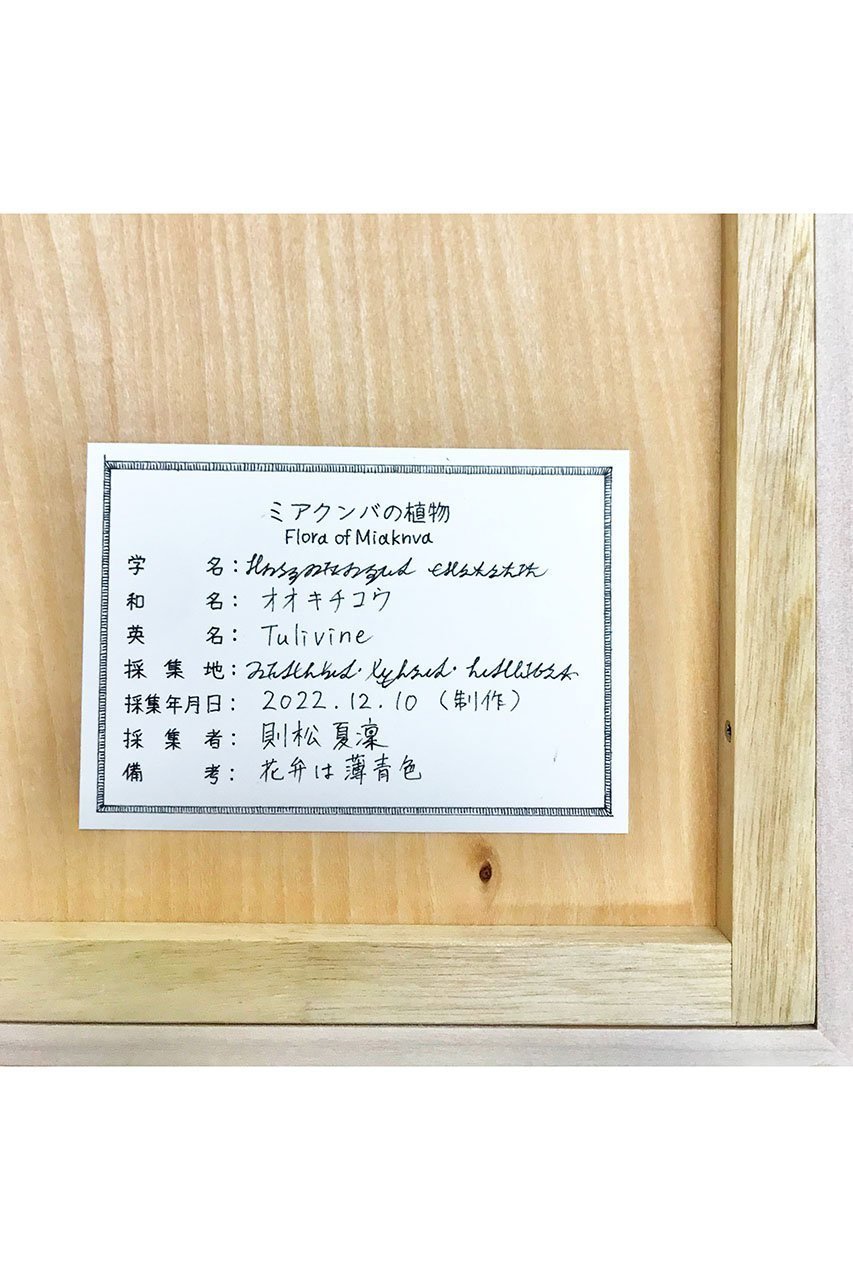 ミアクンバの植物
Flora of Miaknva
学名：
和名：オオキチコウ
英名：Tulivine
採集地：
採集年月日：2022.12.10（制作）
採集者：則松 夏凜
備考：花弁は薄青色